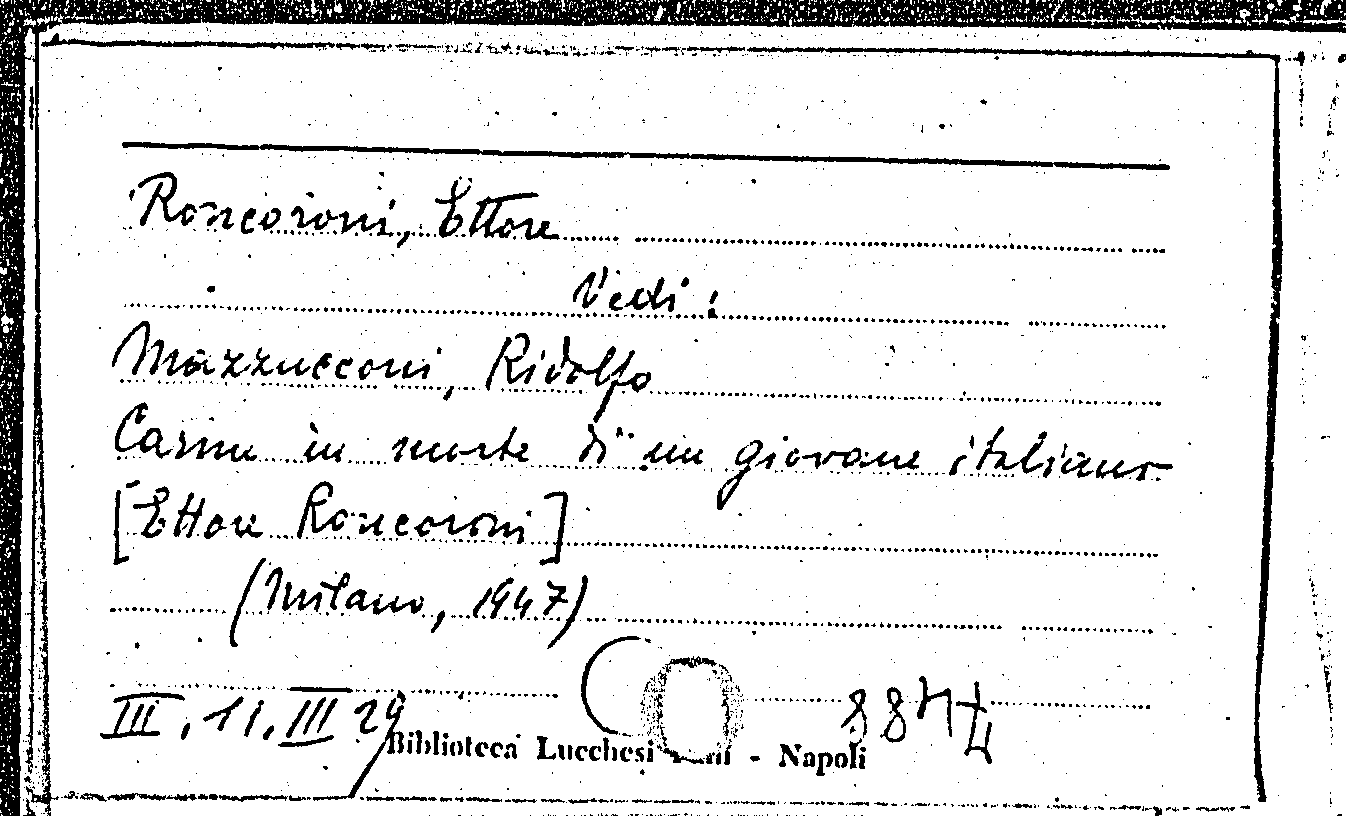 Roncoroni, Ettore
Vedi:
Mazzucconi, Ridolfo
Carme in morte di un giovane italiano
[Ettore Roncoroni]
(Milano, 1947)
III. 11. III 29
Biblioteca Lucchesi - Napoli